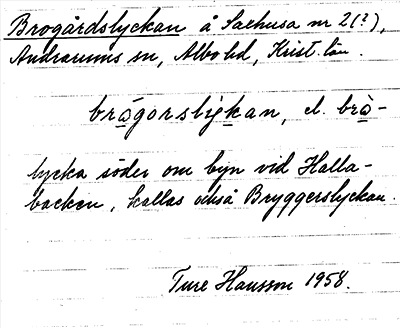 Brogårdslyckan å Saxhusa nr 2(?),
Andrarums sn, Albo hd, Krist. län.
brågorslykan, el. brå-
lycka söder om byn vid Halla-
backen, kallas också Bryggerslyckan.
Ture Hansson 1958.